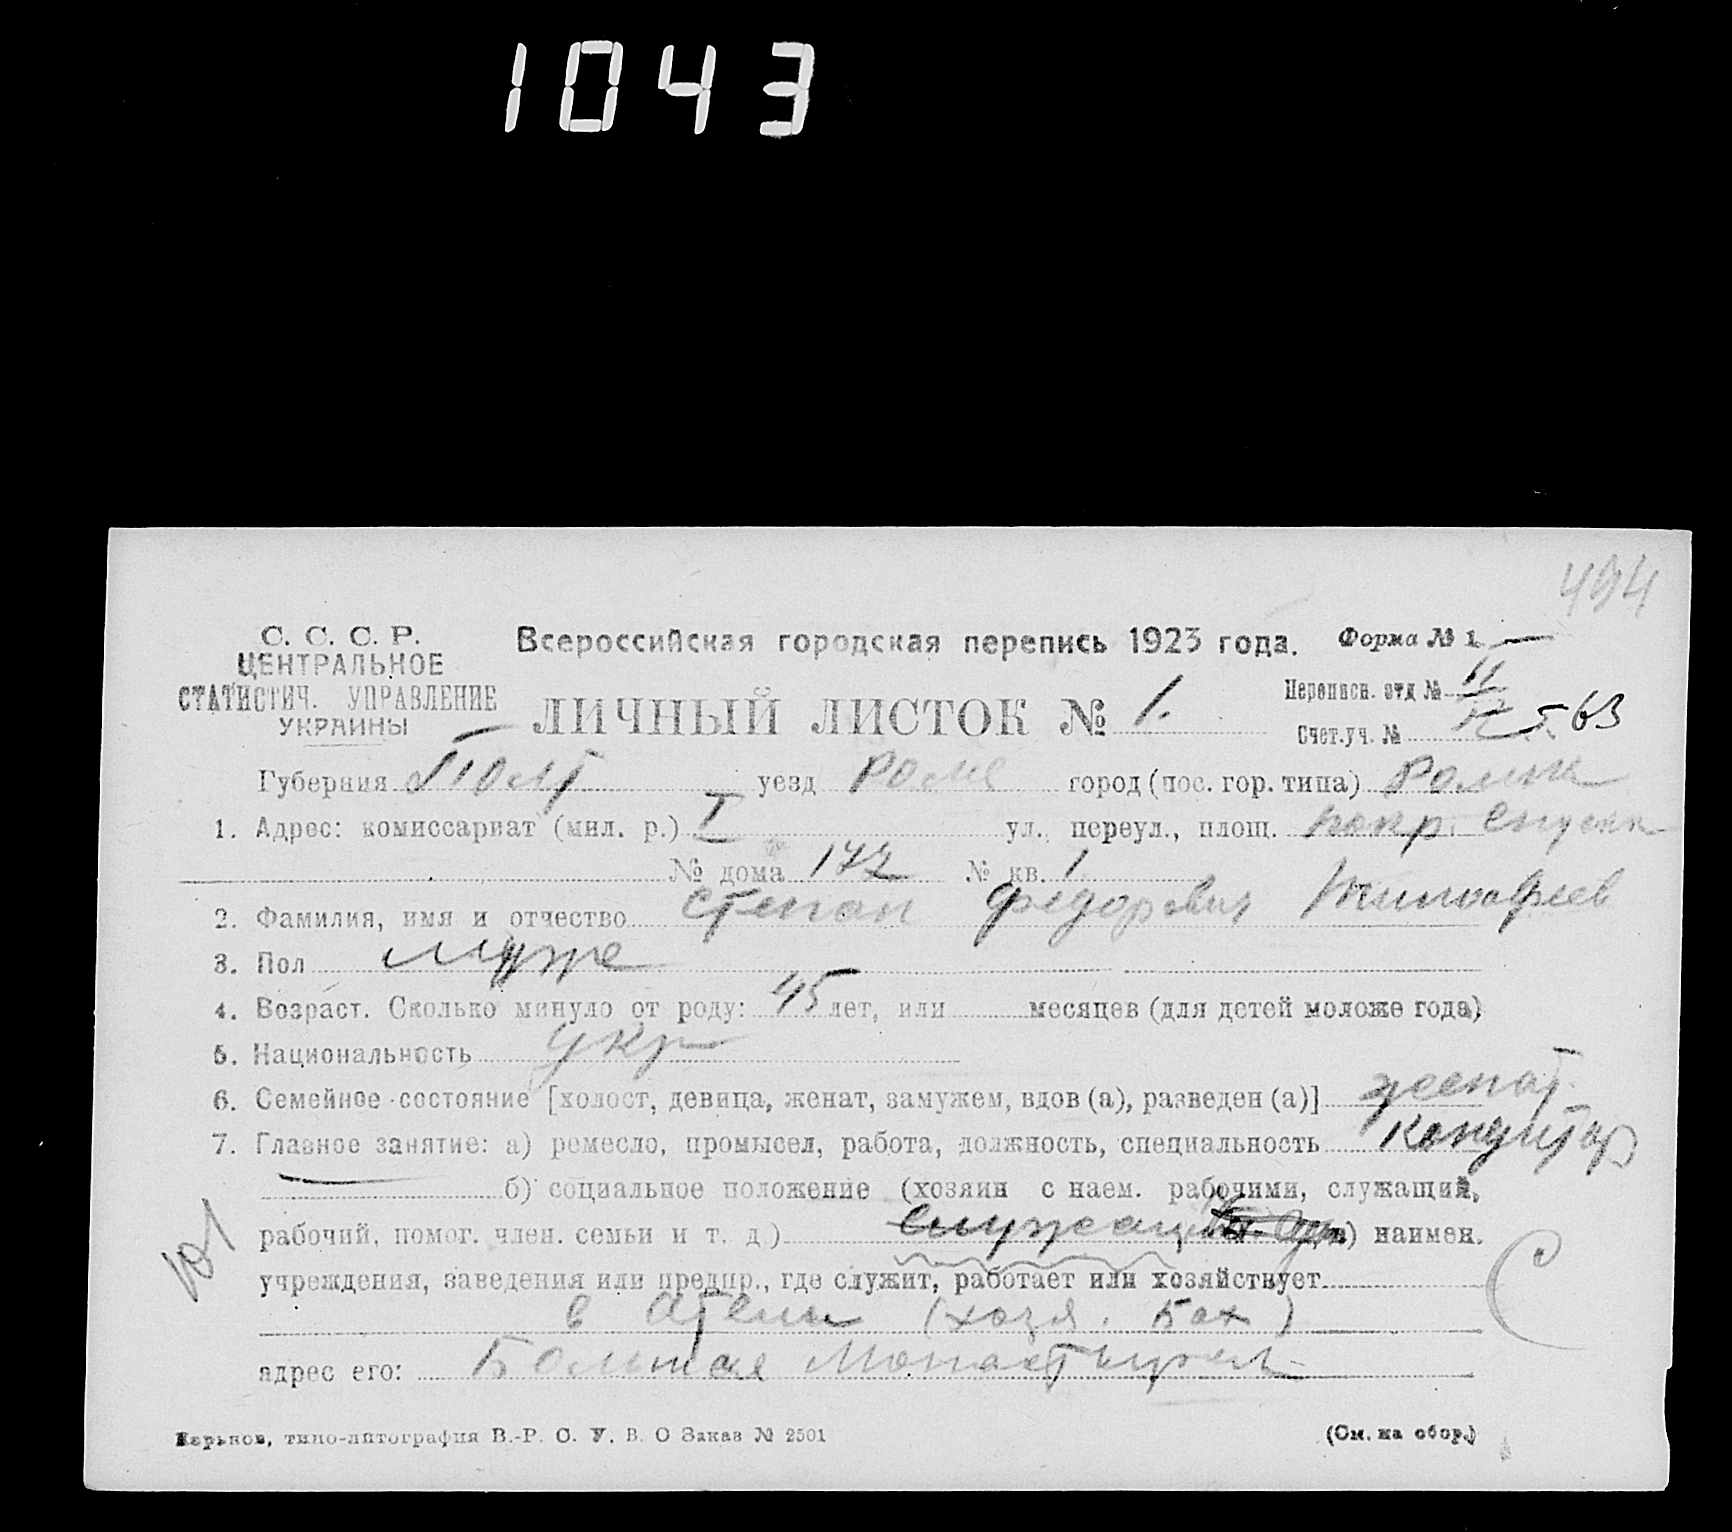 1043
494
С. С. С. Р.
ЦЕНТРАЛЬНОЕ
СТАТИСТИЧ. УПРАВЛЕНИЕ
УКРАИНЫ
Всероссийская городская перепись 1923 года. Форма № 1
ЛИЧНЫЙ ЛИСТОК № 1.
Переписн. отд № 11
Счет.уч. № 63
Губерния Полт уезд Роме город (пос. гор. типа) Ромны
1. Адрес: комиссариат (мил. р.) I ул., переул., площ. покр. спуск
№ дома 172 № кв. 1
2. Фамилия, имя и отчество Степан Федорович Тимофеев
3. Пол муже
4. Возраст. Сколько минуло от роду: 45 лет, или месяцев (для детей моложе года)
5. Национальность укр
6. Семейное состояние [холост, девица, женат, замужем, вдов (а), разведен (а)] женат.
7. Главное занятие: а) ремесло, промысел, работа, должность, специальность кондитор
б) социальное положение (хозяин с наем. рабочими, служащий,
рабочий, помог. член. семьи и т. д.) служащий в) наимен.
учреждения, заведения или предпр., где служит, работает или хозяйствует
в (хозя. Бах)
адрес его: Большая Монастырск
Харьков, типо-литография В.-Р. С. У. В. О Заказ № 2501
(См. на обор.)